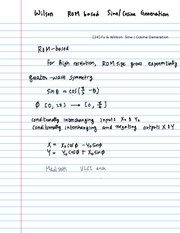 Wilson ROM based Sine/Cosine Generation
Fu & Willson Sine / Cosine Generation
ROM-based
For high resolution, ROM size grows exponentially
quarter-wave symmetry
sin θ = cos(π/2 − θ)
ϕ [0, 2π] → [0, π/4]
conditionally interchanging inputs X₀ & Y₀
conditionally interchanging and negating outputs X & Y
X = X₀ cos ϕ − Y₀ sin ϕ
Y = Y₀ cos ϕ + X₀ sin ϕ
VLSI